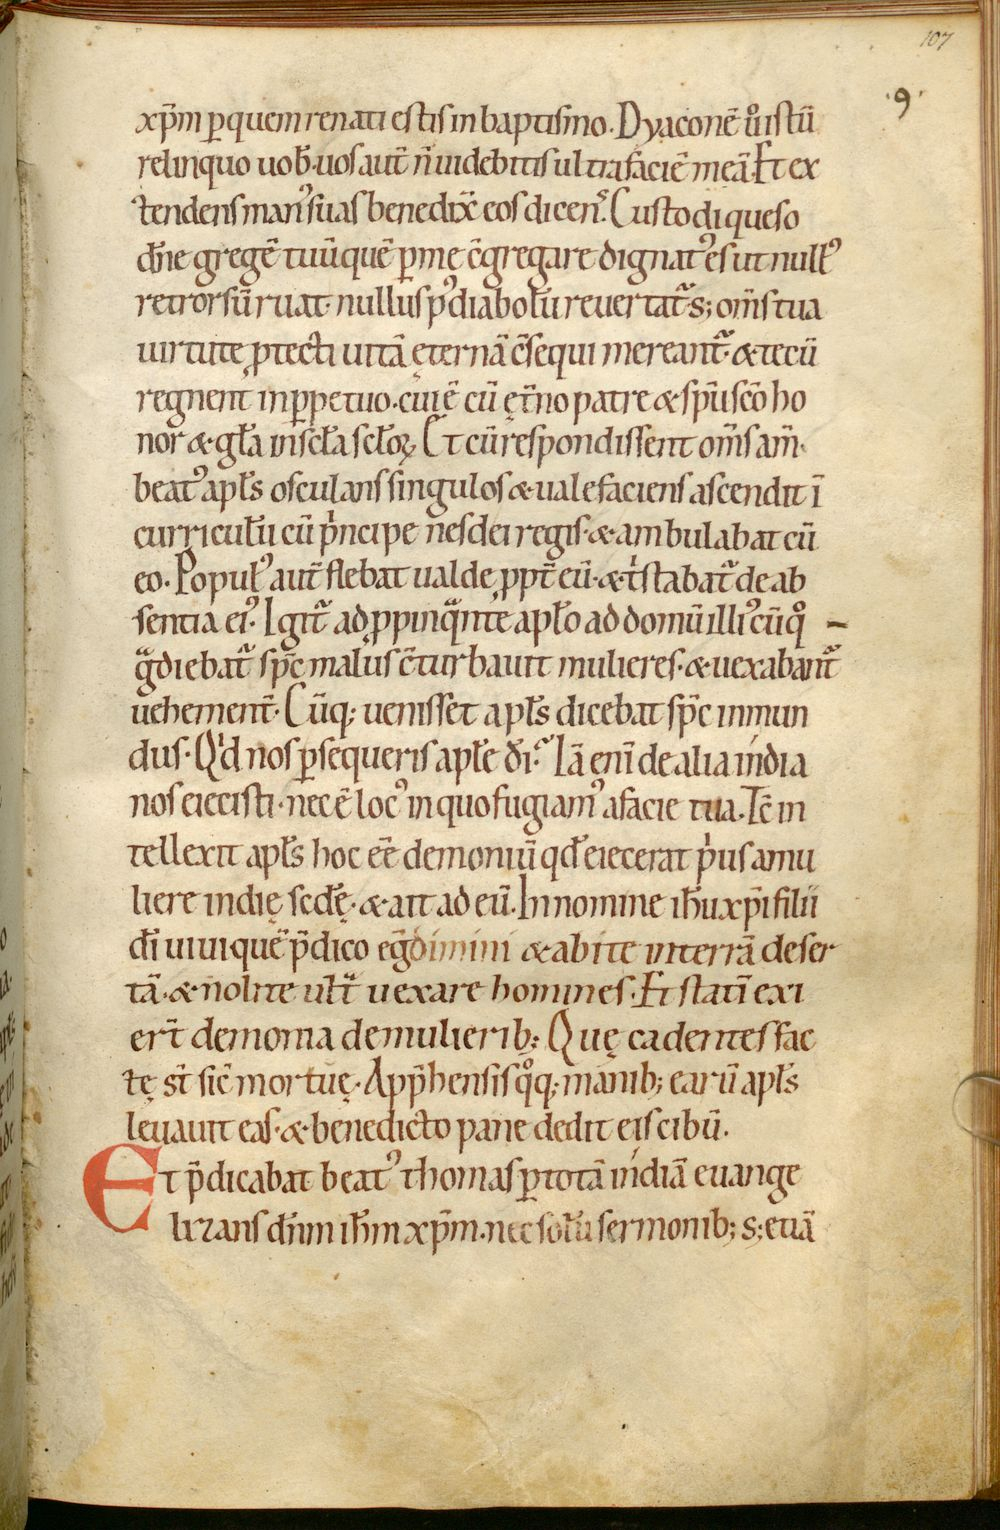 107
·9·
xp̄m ꝑ quem renati estis in baptismo. Dyaconē u̾ istū
relinquo uob̄. uos aut̄ n̄ uidebitis ultra faciē meā. Et ex
tendens man᾽ suas benedix̄ eos dicen᾽. Custodi queso
dn̄e gregē tuū quē ꝑ me c̄gregare dignat᾽ es ut null᾽
retrorsū ruat. nullus p᾽ diabolū reuertat᷑. s; om̄s tua
uirtute ꝓtecti uitā ęternā c̄sequi mereant᷑. & tecū
regnent in ꝑpetuo. cui ē cū ęt̄no patre & sp̄u sc̄o ho
nor & gl̄a in scl̄a scl̄oꝝ. Et cū respondissent om̄s am̄.
beat᾽ apl̄s osculans singulos & ualefaciens ascendit ī
curriculū cū pͥncipe nesdei regis. & ambulabat cū
eo. Popul᾽ aut̄ flebat ualde ꝓpt̄ eū. & tͥstabat᷑ de ab
sentia ei᾽. Igit᷑ adꝓpinqᷓnte apl̄o ad domū illi᾽ cūqͦ
gᷓdiebat᷑ sp̄c malus c̄turbauit mulieres. & uexabant᷑
uehement̄. Cūq; uenisset apl̄s dicebat sp̄c inmun
dus. Qͥd nos ꝑsequeris apl̄e dī? Iā enī de alia india
nos eiecisti. nec ē loc᾽ in quo fugiam᾽ a facie tua. Tc̄ in
tellexit apl̄s hoc eē demoniū qd̄ eiecerat pͥus a mu
liere indię sedę. & ait ad eū. In nomine ih̄u xp̄i filii
dī uiui quē p̄dico egᷓdimini & abite in terrā deser
tā. & nolite ult᷑ uexare homines. Et statī exi
ert̄ demonia de mulierib;. Quę cadentes fac
tę st̄ sic̄ mortuę. App̄hensis qͦq; manib; earū apl̄s
leuauit eas. & benedicto pane dedit eis cibū.
Et p̄dicabat beat᾽ thomas ꝑ totā indiā euange
lizans dn̄m ih̄m xp̄m. nec solū sermonib; s; etiā